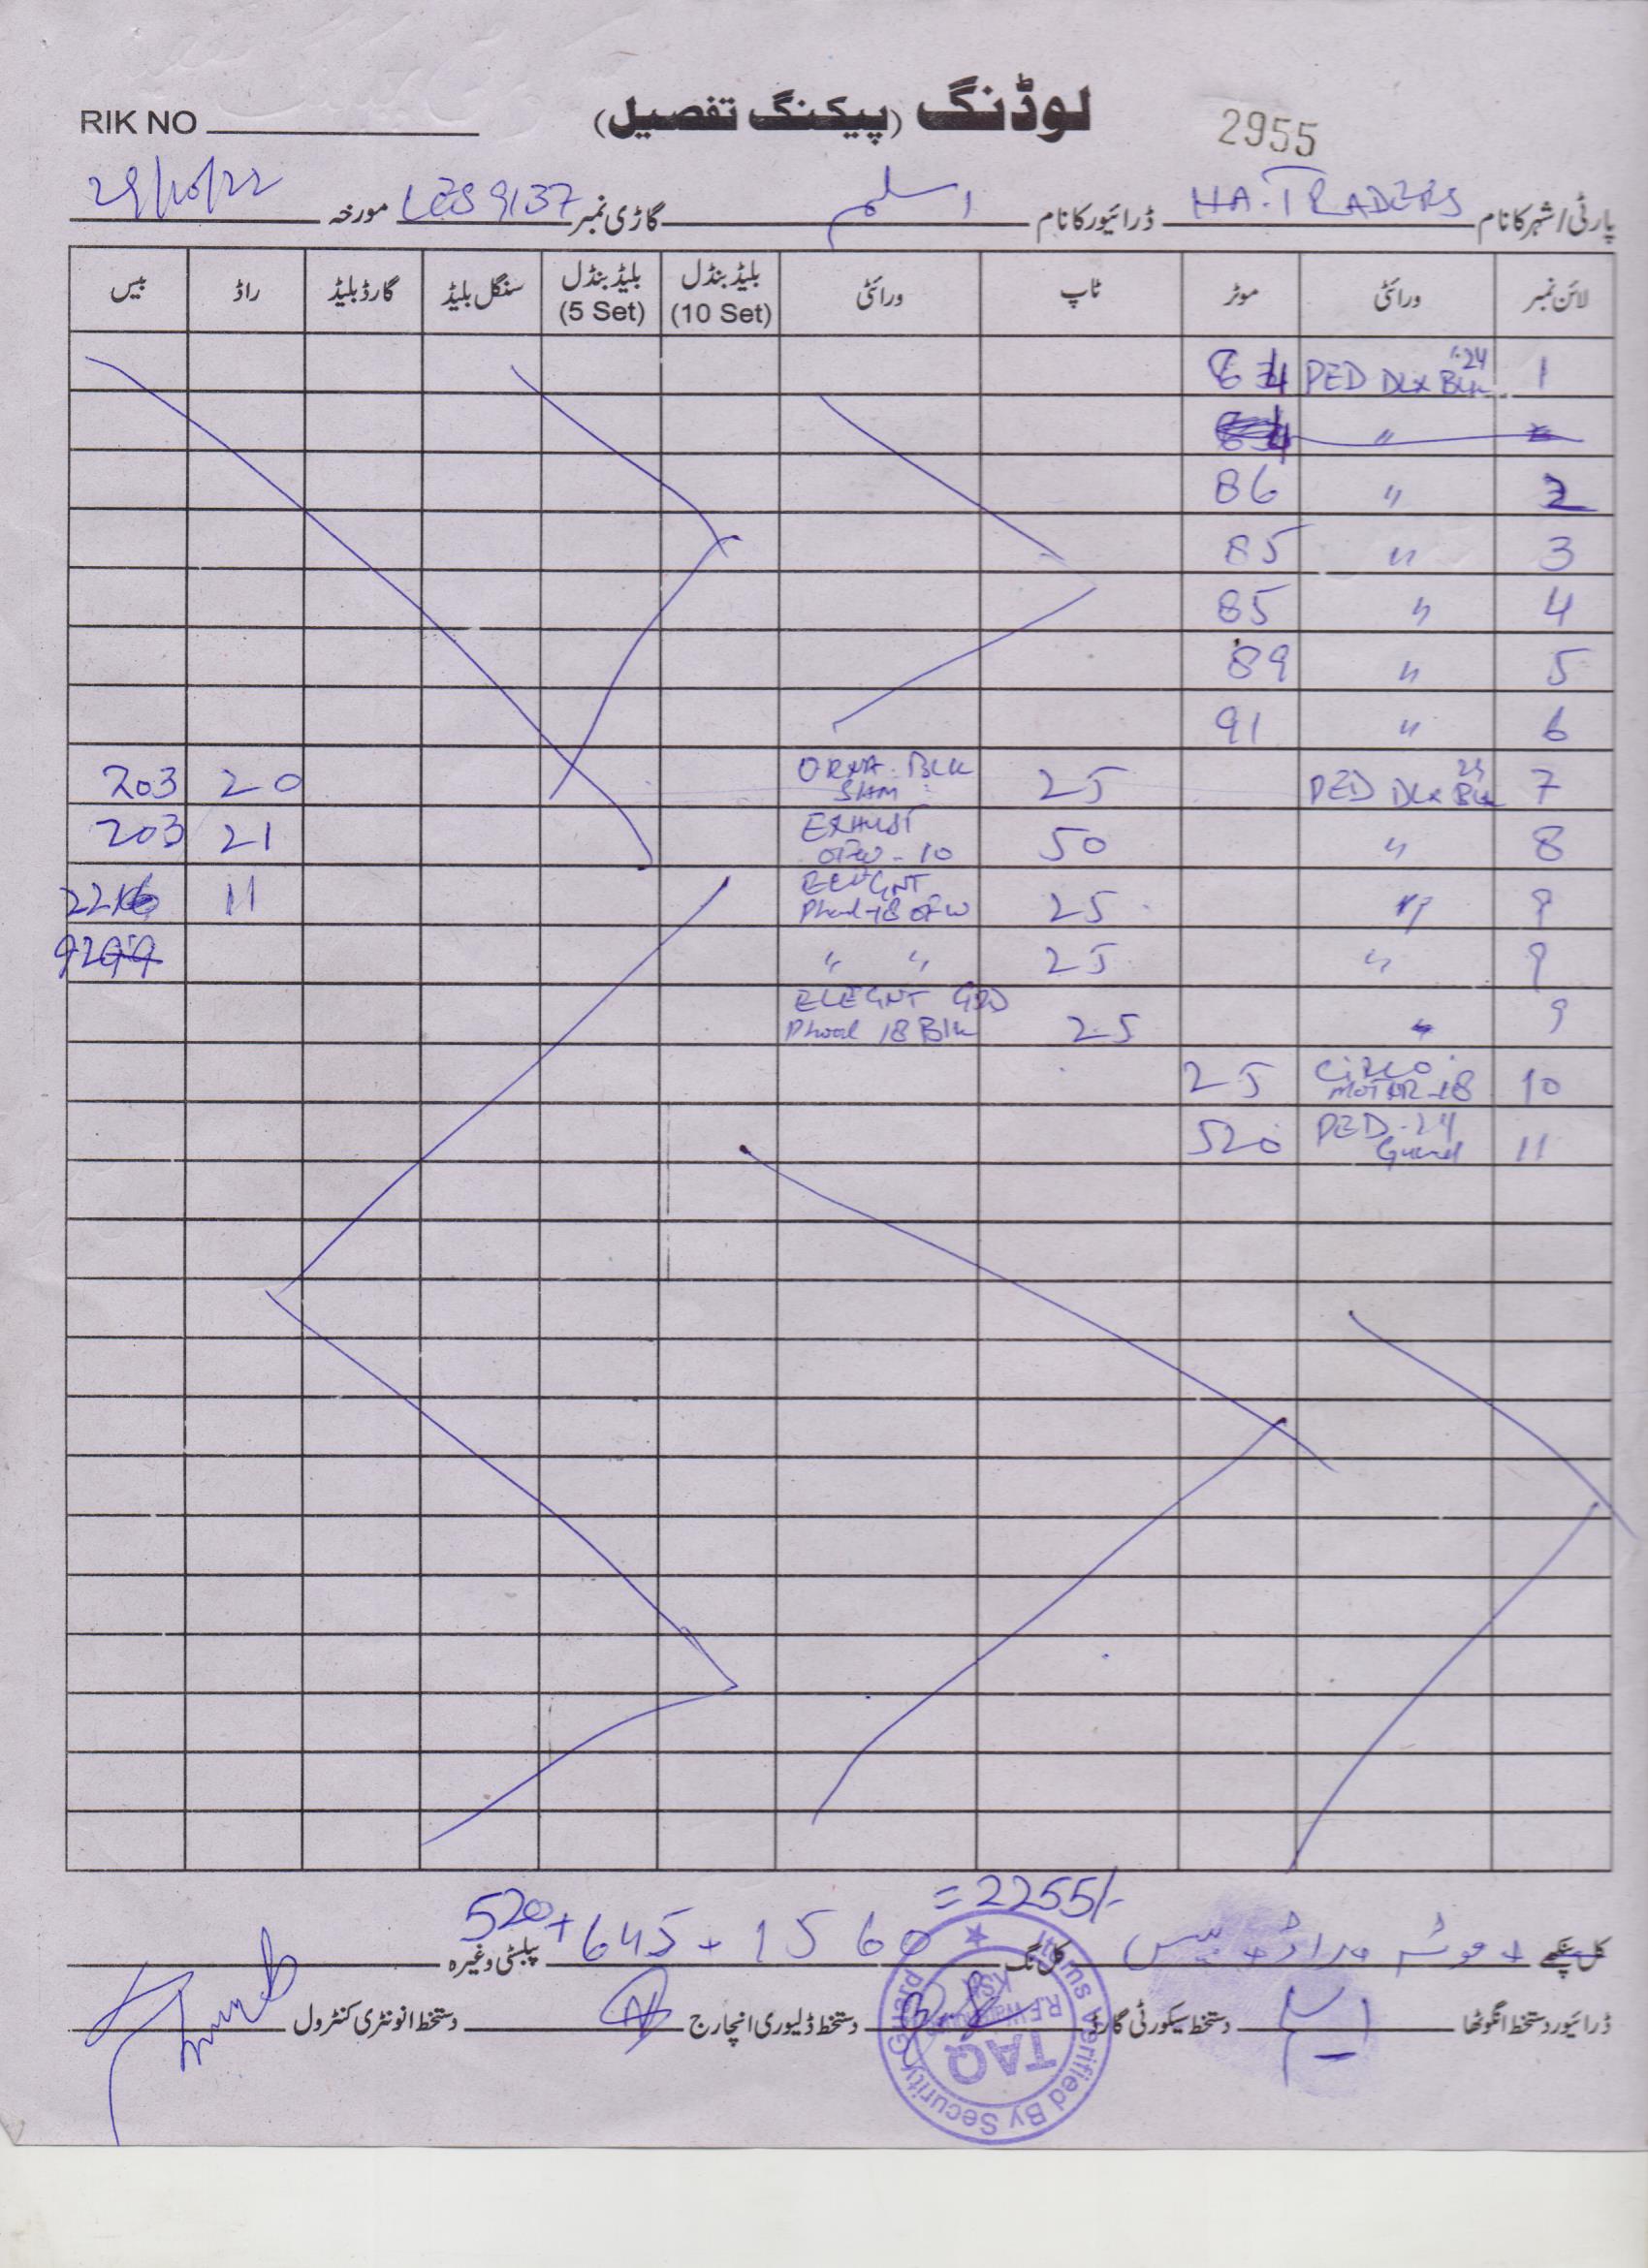 RIK NO لوڈنگ (پیکنگ تفصیل) 2955
پارٹی/شہر کا نام HA. TRADERS ڈرائیور کا نام اسلم گاڑی نمبر LES 9137 مورخہ 29/10/22
لائن نمبر ورائٹی موٹر ٹاپ ورائٹی بلیڈ بنڈل (10 Set) بلیڈ بنڈل (5 Set) سنگل بلیڈ گارڈ بلیڈ راڈ بیس
1 PED DLX BLK 24 84
〃
2 〃 86
3 〃 85
4 〃 85
5 〃 89
6 〃 91
7 PED DLX BLK 24 25 ORNA. BLK 20 203
8 〃 50 EXHUST 10 21 203
9 〃 25 ELEGNT Phool-18 OFW 11
9 〃 25 〃 〃
9 〃 25 ELEGNT GRD Phool 18 Blk
10 CIRCO MOTOR-18 25
11 PED-24 Guard 520
= 2255/-
کل پنکھے + موٹر + راڈ + بیس کل نگ 1560 + 645 + 520 پبلسٹی وغیرہ
ڈرائیور دستخط انگوٹھا دستخط سیکورٹی گارڈ دستخط ڈلیوری انچارج دستخط انونٹری کنٹرول
Items Verified By Security Guard
TAQ
R.F.
KSK